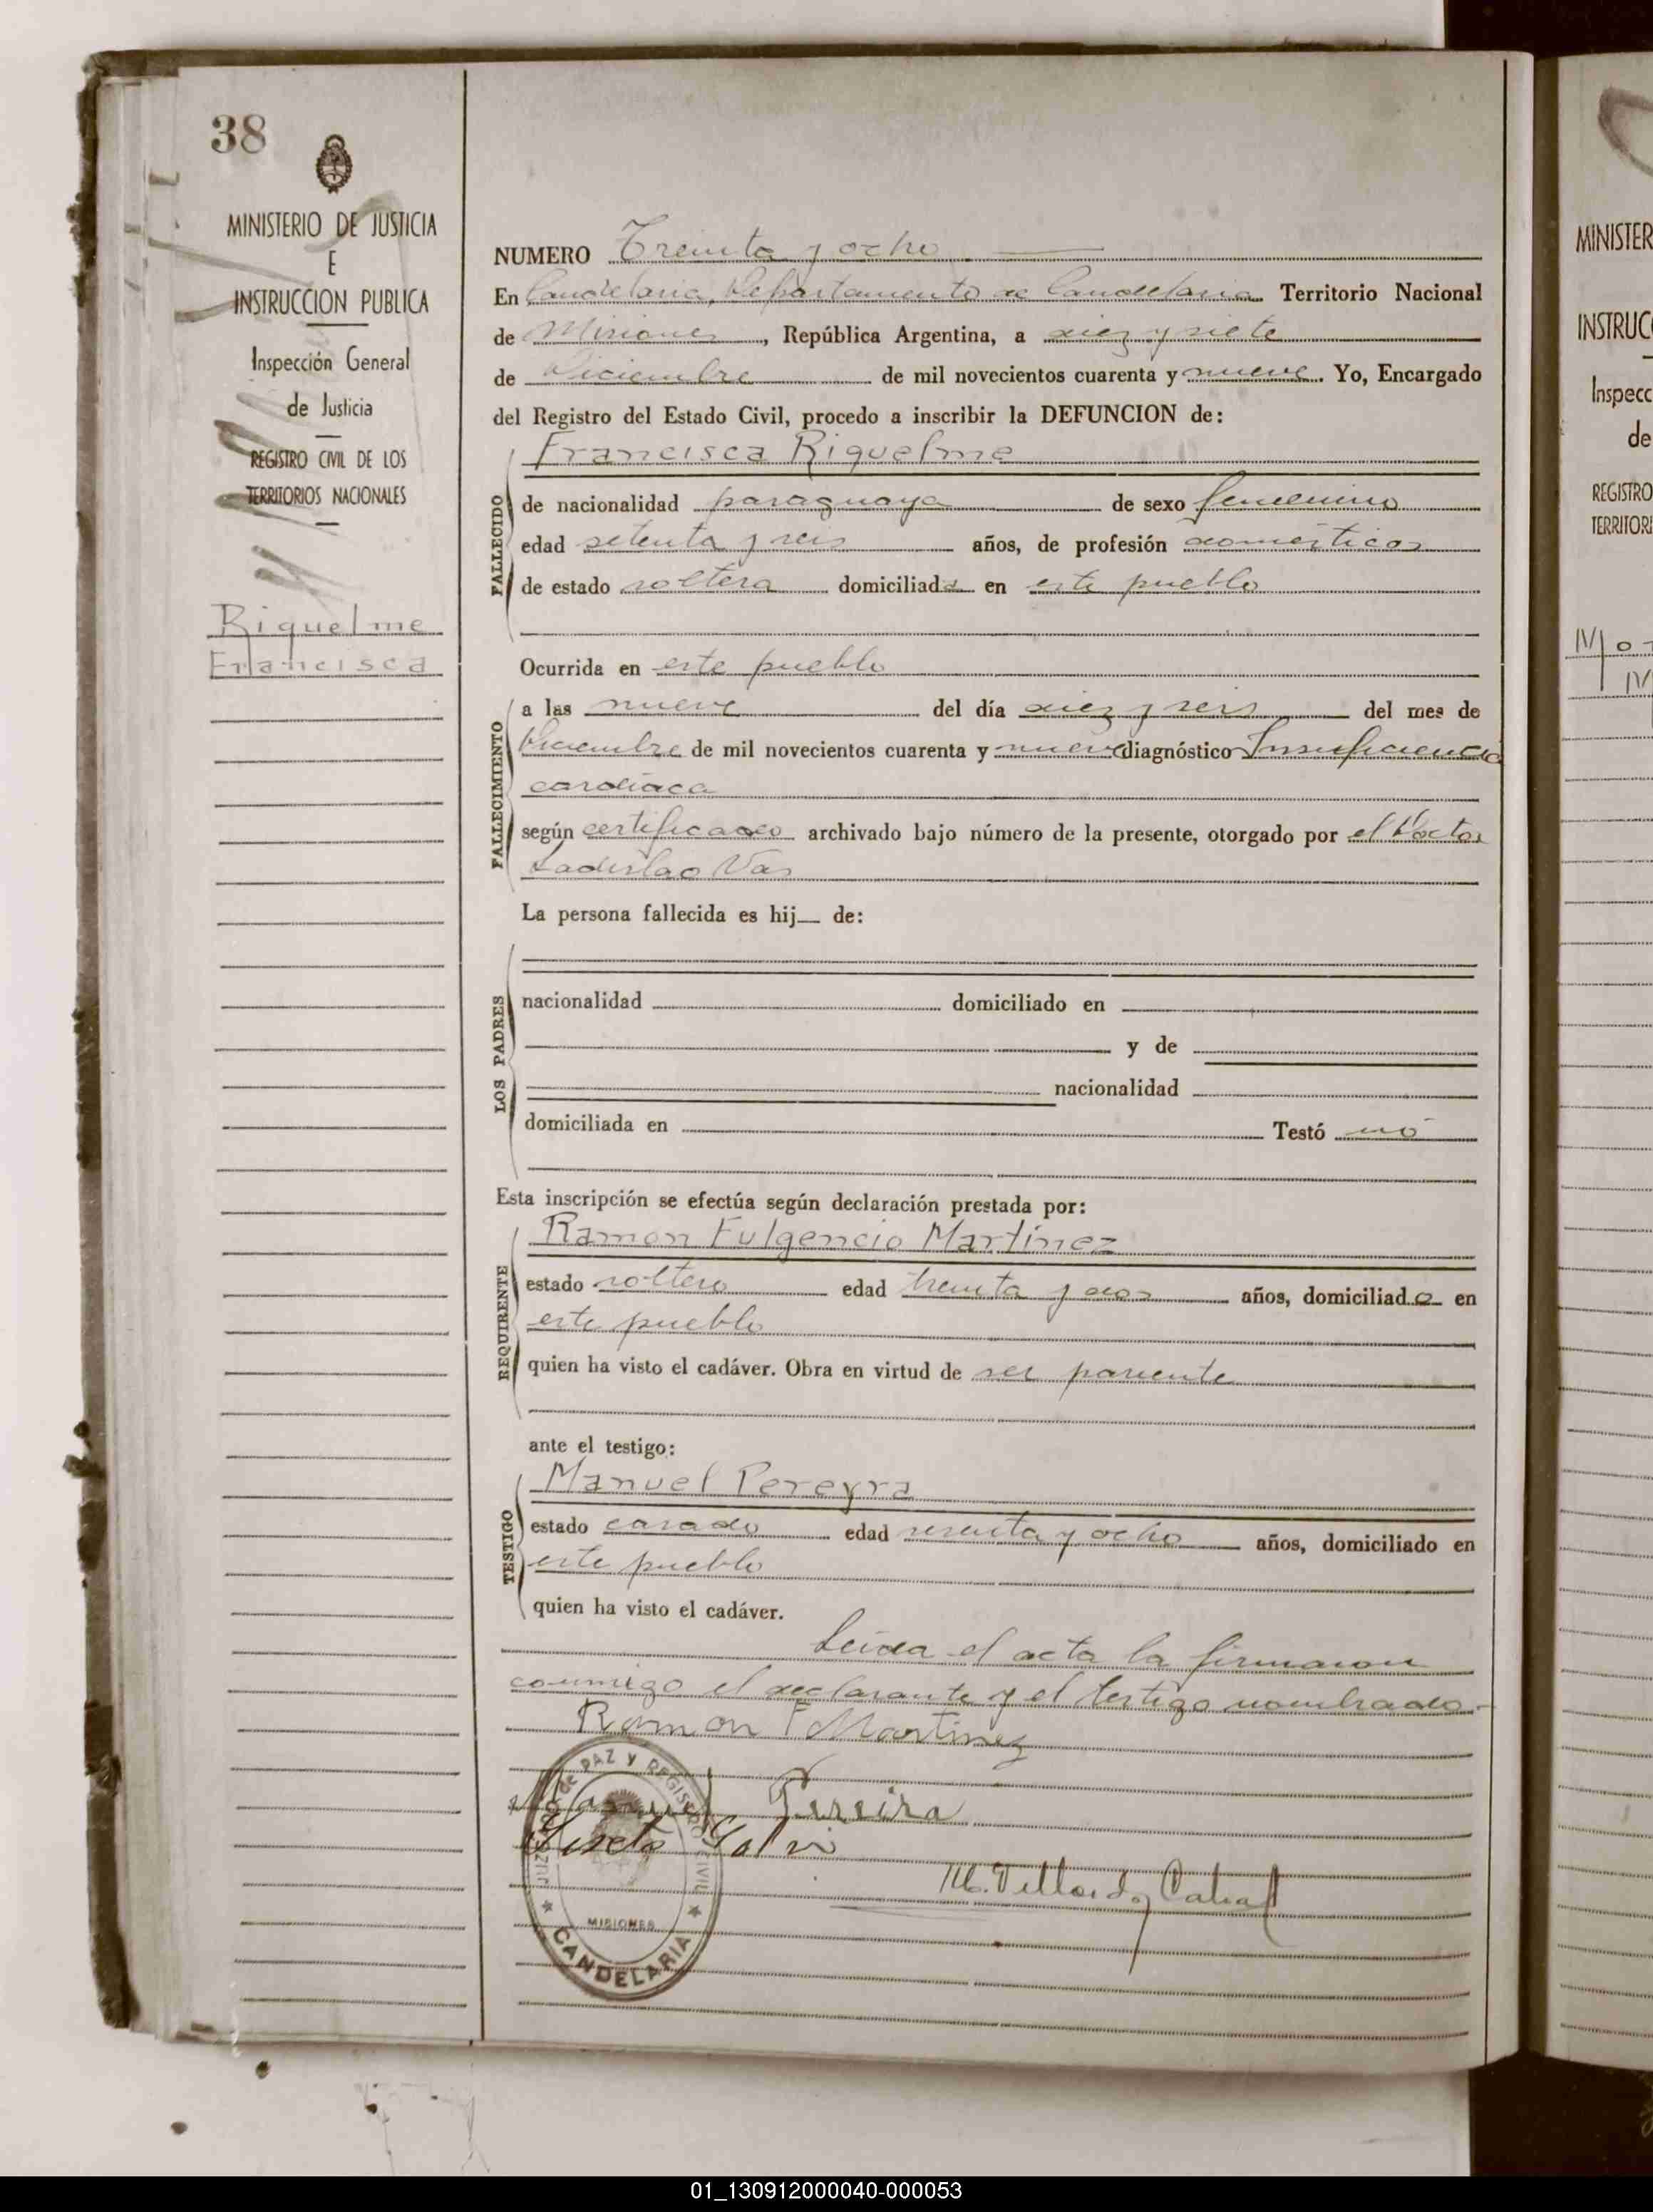 38
MINISTERIO DE JUSTICIA
E
INSTRUCCION PUBLICA
Inspección General
de Justicia
REGISTRO CIVIL DE LOS
TERRITORIOS NACIONALES
Riquelme
Francisca
NUMERO Treinta y ocho
En Candelaria, Departamento de Candelaria Territorio Nacional
de Misiones, República Argentina, a diez y siete
de Diciembre de mil novecientos cuarenta y nueve. Yo, Encargado
del Registro del Estado Civil, procedo a inscribir la DEFUNCION de:
Francisca Riquelme
FALLECIDO
de nacionalidad paraguaya de sexo femenino
edad setenta y seis años, de profesión domésticos
de estado soltera domiciliada en este pueblo
Ocurrida en este pueblo
FALLECIMIENTO
a las nueve del día diez y seis del mes de
Diciembre de mil novecientos cuarenta y nueve diagnóstico Insuficiencia
cardíaca
según certificado archivado bajo número de la presente, otorgado por el Doctor
Ladislao Vas
La persona fallecida es hij__ de:
LOS PADRES
nacionalidad domiciliado en
y de
nacionalidad
domiciliada en Testó nó
Esta inscripción se efectúa según declaración prestada por:
Ramon Fulgencio Martinez
REQUIRENTE
estado soltero edad treinta y dos años, domiciliado en
este pueblo
quien ha visto el cadáver. Obra en virtud de ser pariente
ante el testigo:
Manuel Pereyra
TESTIGO
estado casado edad sesenta y ocho años, domiciliado en
este pueblo
quien ha visto el cadáver.
Leida el acta la firmaron
conmigo el declarante y el testigo nombrado.-
Ramon F Martinez
Manuel Pereira
JUZGADO de PAZ y REGISTRO CIVIL
MISIONES
CANDELARIA
MINISTER
INSTRUC
Inspecc
de
REGISTRO
TERRITORI
01_130912000040-000053